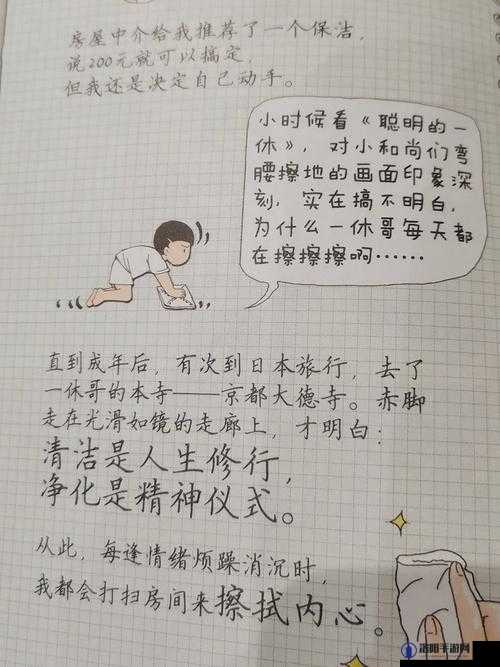 房屋中介给我推荐了一个保洁，
说200元就可以搞定，
但我还是决定自己动手。
小时候看《聪明的一
休》，对小和尚们弯
腰擦地的画面印象深
刻，实在搞不明白，
为什么一休哥每天都
在擦擦擦啊……
直到成年后，有次到日本旅行，去了
一休哥的本寺——京都大德寺。赤脚
走在光滑如镜的走廊上，才明白：
清洁是人生修行，
净化是精神仪式。
从此，每逢情绪烦躁消沉时，
我都会打扫房间来擦拭内心。
洛阳手游网